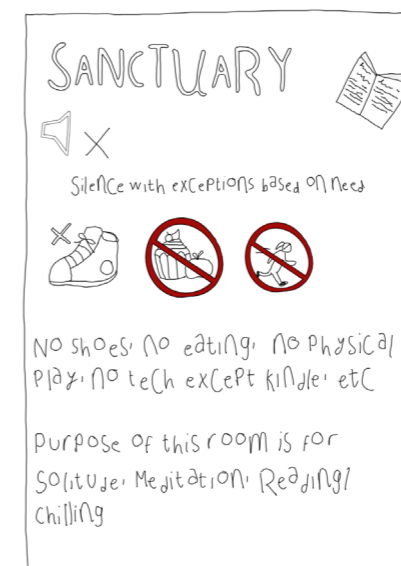 SANCTUARY
Silence with exceptions based on need
No shoes, no eating, no physical
play, no tech except kindle, etc
purpose of this room is for
Solitude, Meditation, Reading/
chilling